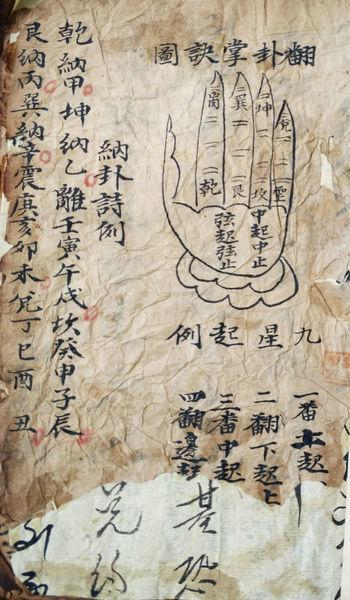 翻卦掌訣圖
兌
坤
巽
坎
艮
乾
中起中止
弦起弦止
九星起例
一番上起
二翻下起上
三番中起
四翻邊起
納卦詩例
乾納甲坤納乙離壬寅午戌坎癸申子辰
艮納丙巽納辛震庚亥卯未兌丁巳酉丑
恐